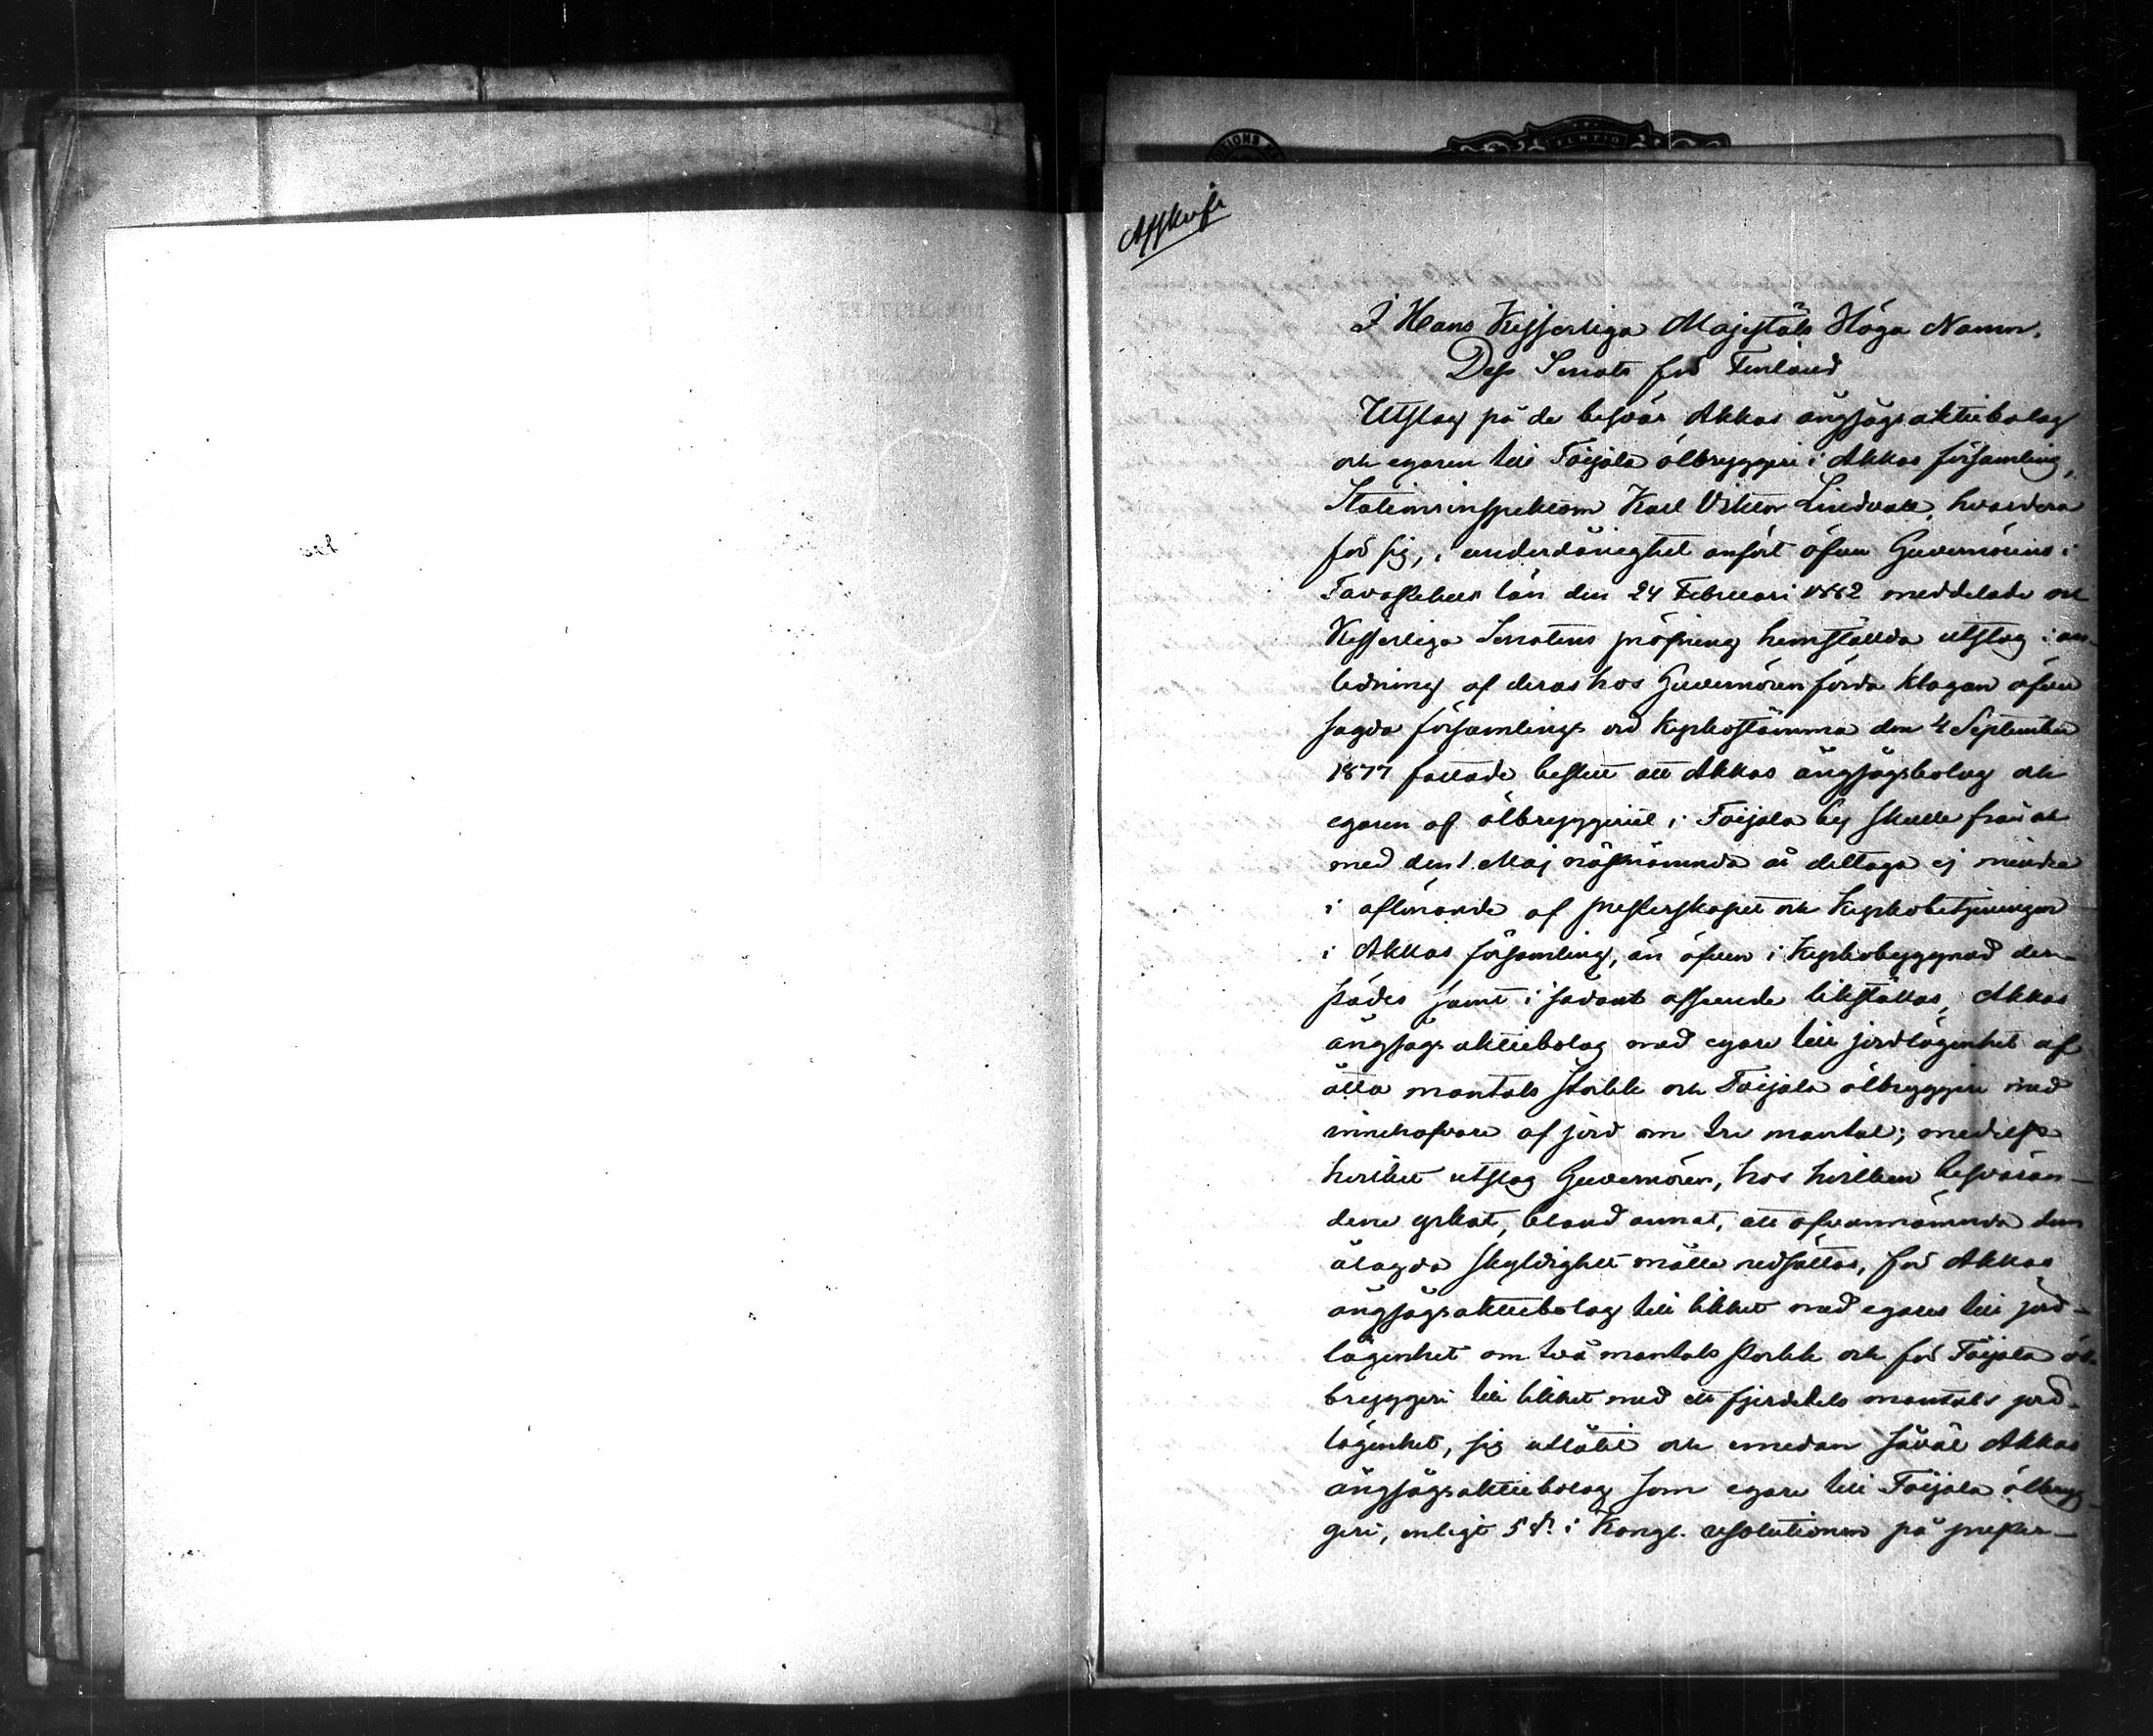 Afskrift
I Hans Kejserliga Majestäts Höga Namn.
Dess Senats för Finland
Utslag på de besvär Akkas ångsågsaktiebolag
och egaren till Toijala ölbryggeri i Akkas församling,
Stationsinspektorn Karl Viktor Lindvall, hvardera
för sig, i underdånighet anfört öfver Guvernörens i
Tavastehus län den 24 Februari 1882 meddelade och
Kejserliga Senatens pröfning hemstälda utslag i an-
ledning af deras hos Guvernören förda klagan öfver
sagda församlings vid kyrkostämma den 4 September
1877 fattade beslut att Akkas ångsågsbolag och
egaren af ölbryggeriet i Toijala by skulle från och
med den 1 Maj näfnämnda år deltaga ej mindre
i aflönande af presterskapet och kyrkobetjeningen
i Akkas församling, än äfven i kyrkobyggnad der-
städes samt i sådant afseende likställas, Akkas
ångsågs aktiebolag med egare till jordlägenhet af
åtta mantals storlek och Toijala ölbryggeri med
innehafvare af jord om tre mantal; medelst
hvilket utslag Guvernören, hos hvilken besvären-
dene yrkat, bland annat, att ofvannämnda dem
ålagda skyldighet måtte nedsättas, för Akkas
ångsågsaktiebolag till likhet med egares till jord-
lägenhet om två mantals storlek och för Toijala öl-
bryggeri till likhet med ett fjerdedels mantals jord-
lägenhet, sig utlåtit och emedan såväl Akkas
ångsågsaktiebolag som egare till Toijala ölbryg-
geri, enligt 5 §. i Kongl. resolutionen på prester-